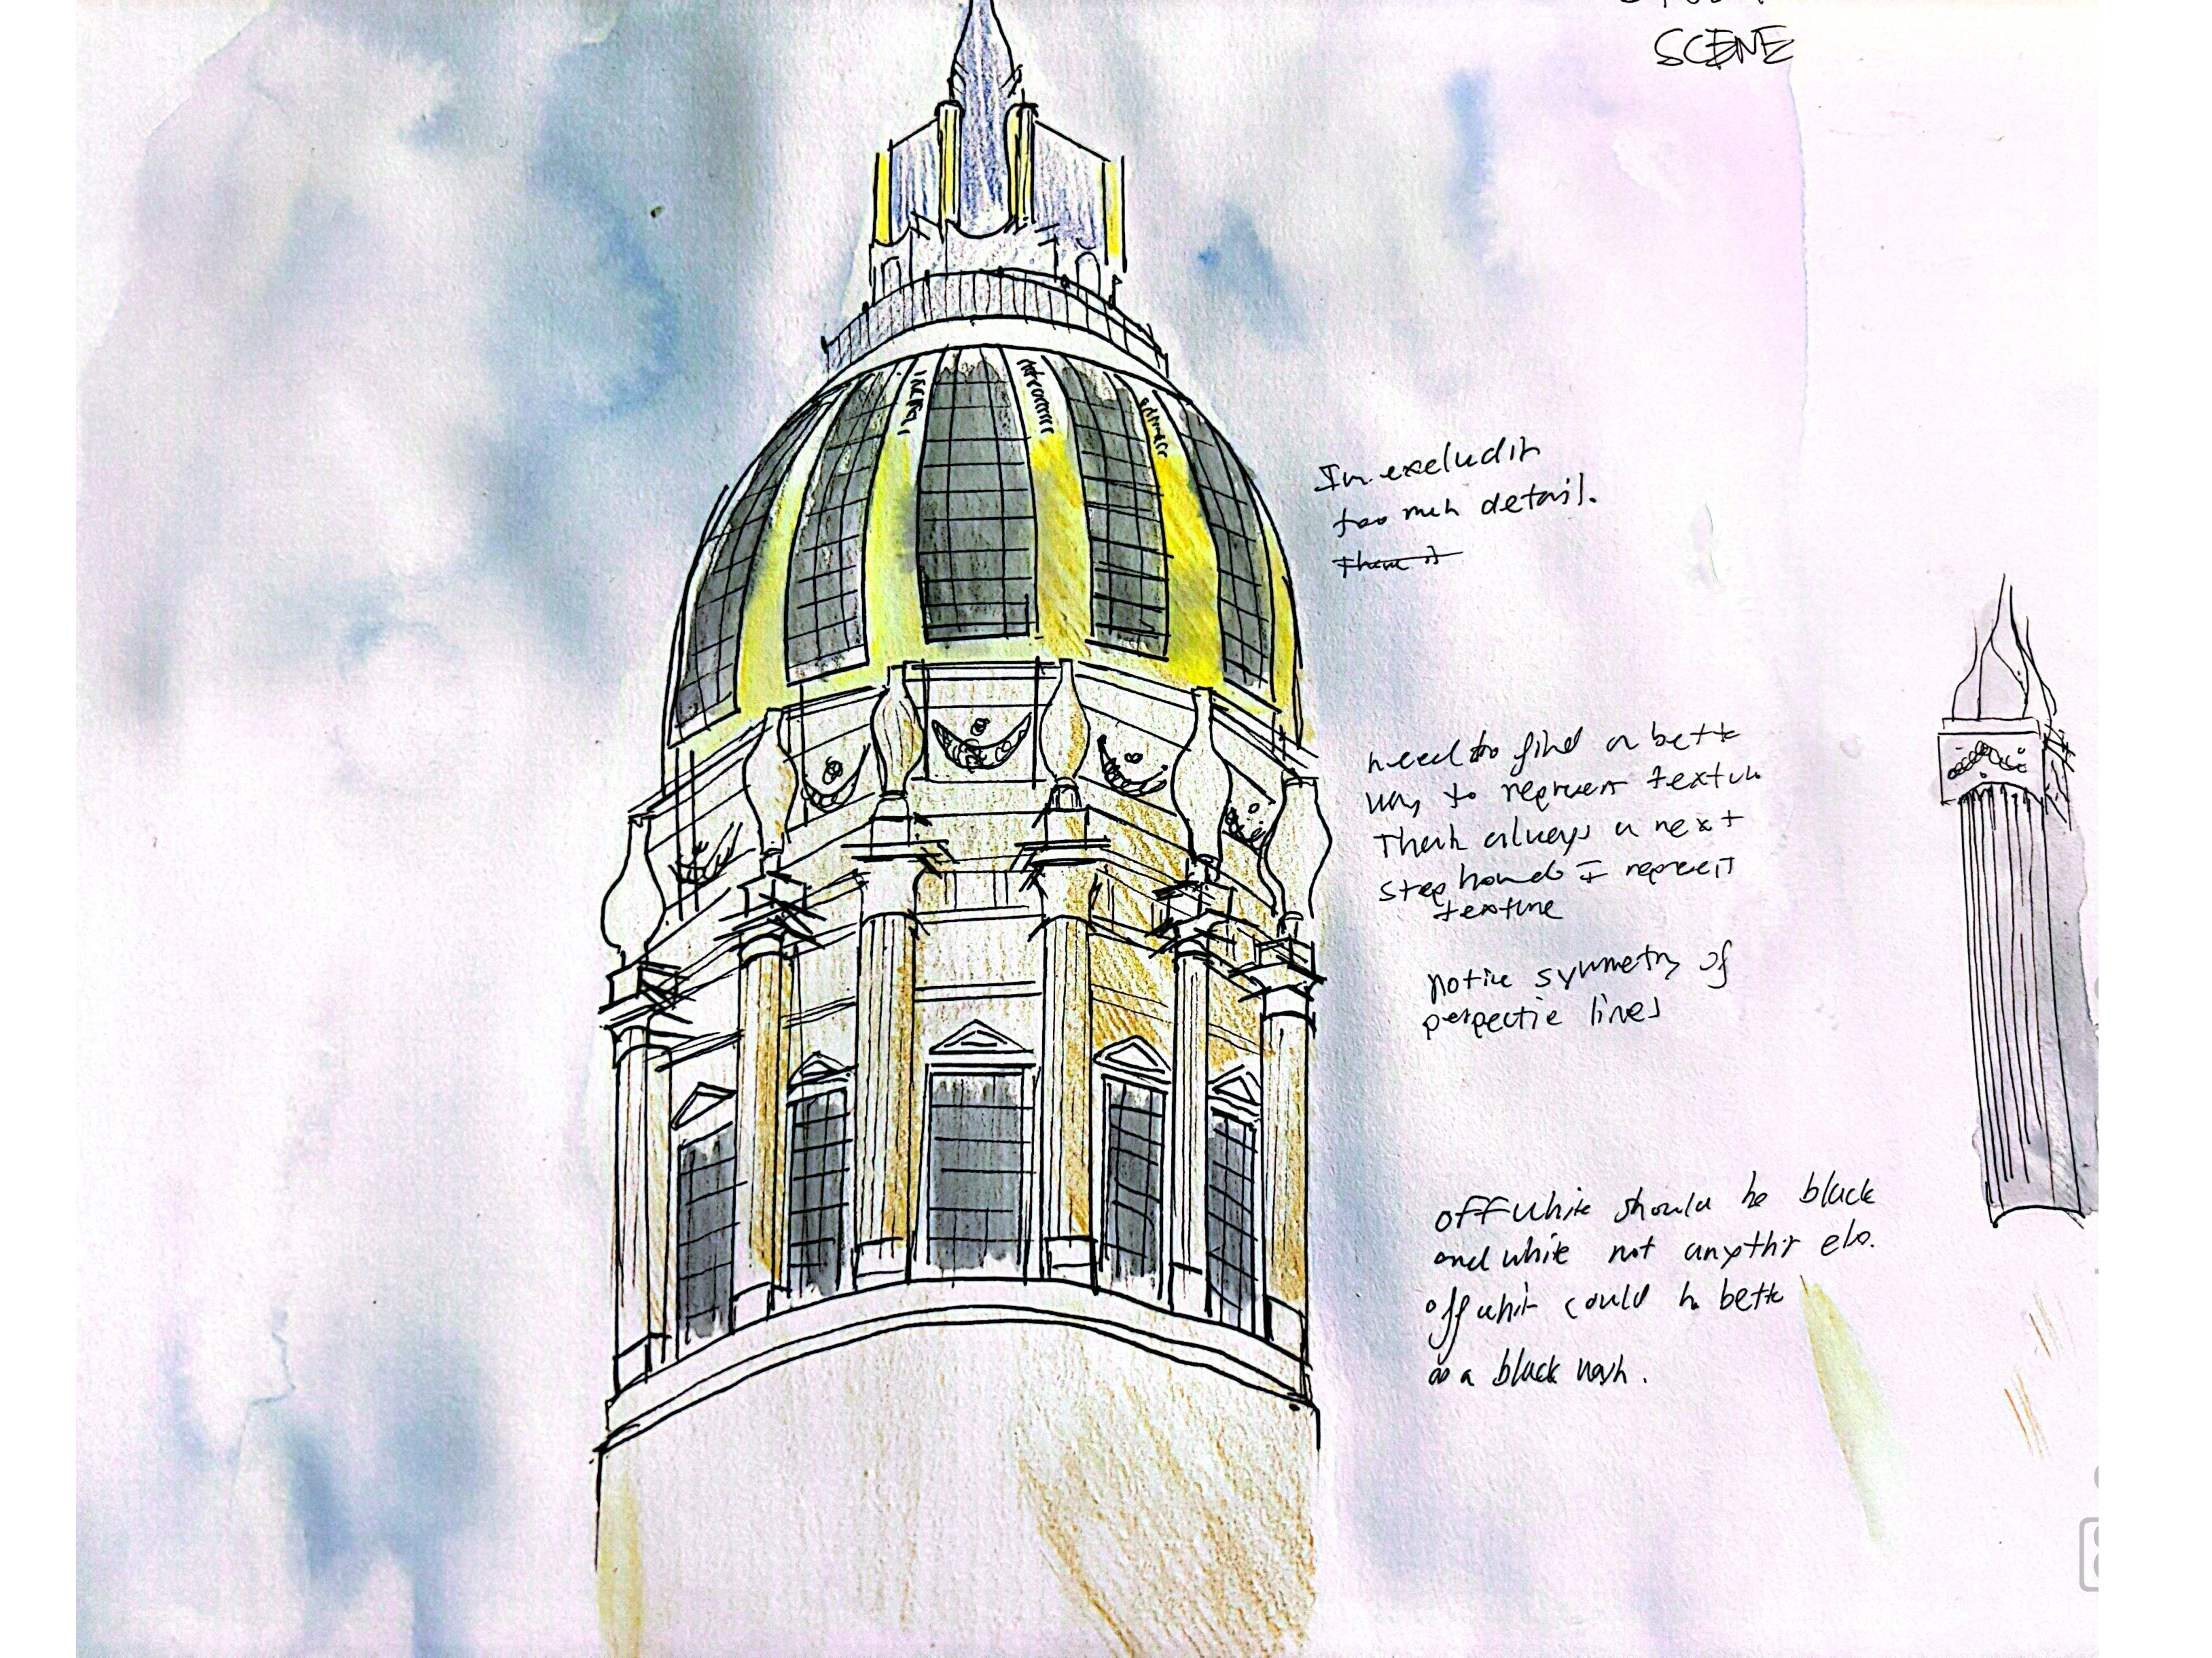 SCENE
too much detail.
need to find a better
way to represent texture
always a next
step how do I represent
texture
notice symmetry of
perspective lines
off white should be black
and white not anything else.
off white could be better
as a black wash.